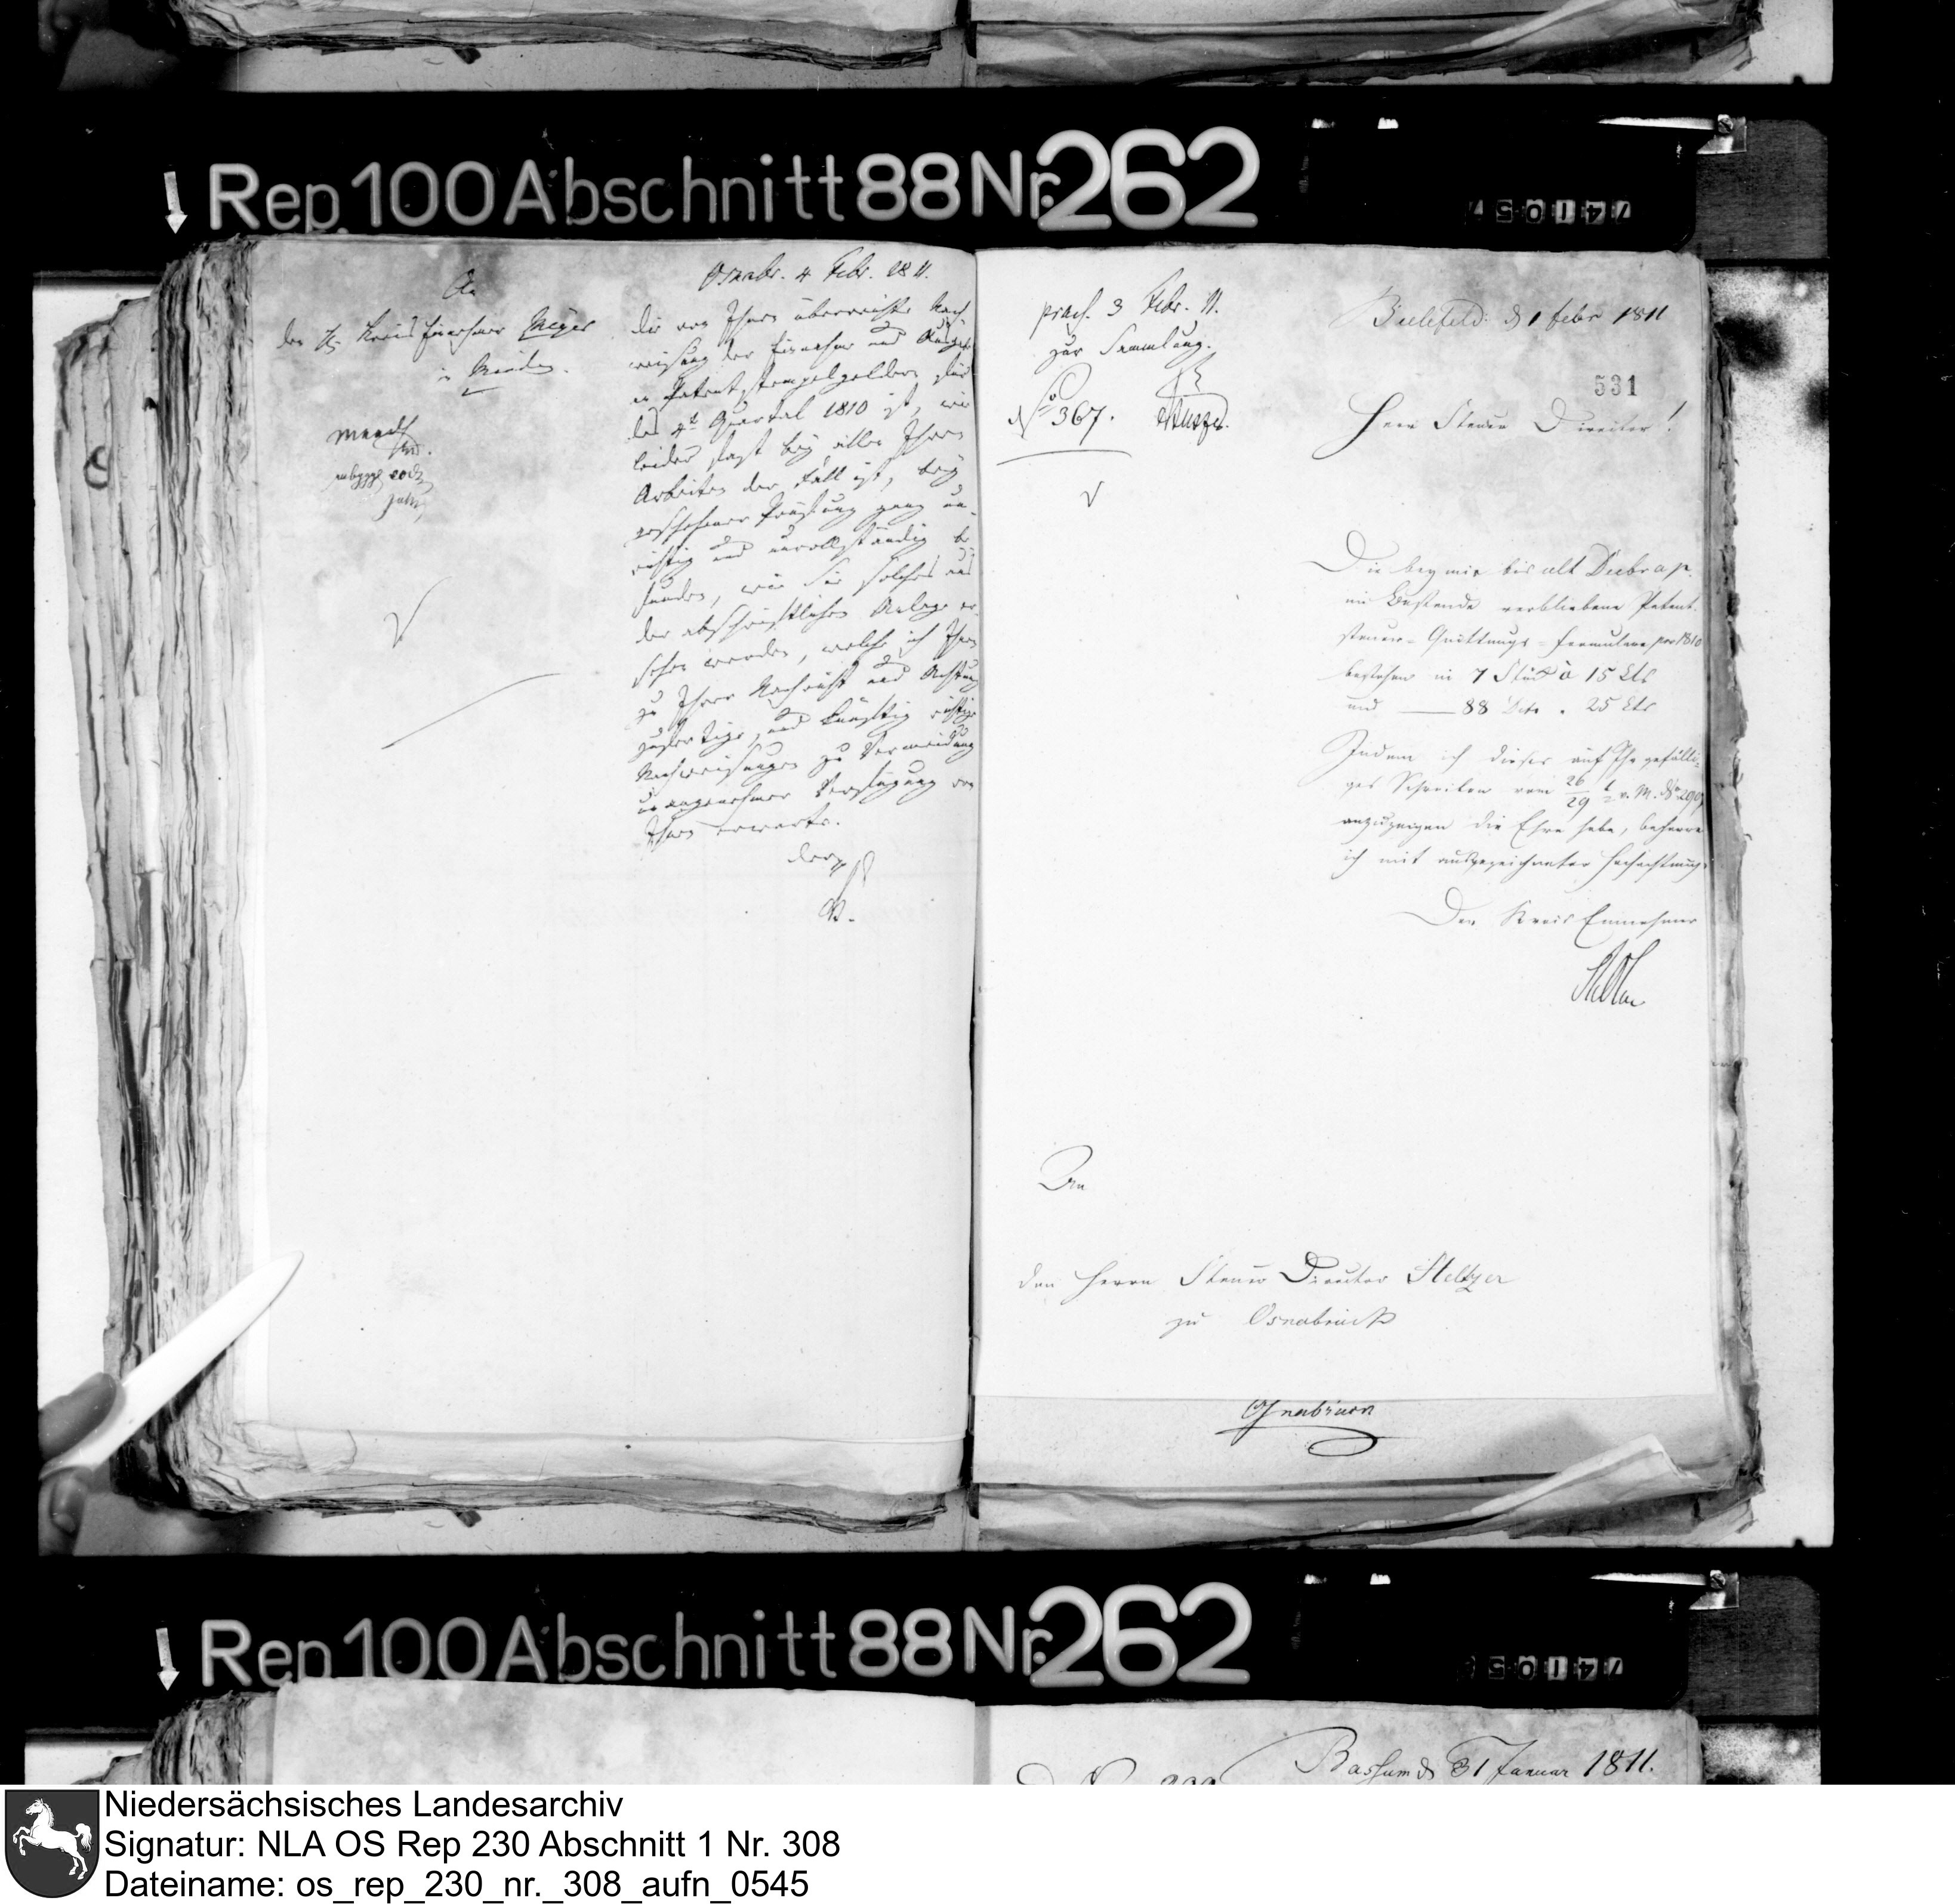 Rep. 100 Abschnitt 88 Nr. 262
Osnabr. 4 Febr. 1811.
An
den H. Kreis Einnehmer Meyer
in Minden.
die von Ihnen überreichte Nach-
weisung der Einnahme und Ausgabe
an Patentstempelgeldern für
das 4t Quartal 1810 ist, wie
leider fast bey allen Ihren
Arbeiten der Fall ist, bey
geschehener Prüfung ganz un-
richtig und unvollständig be-
funden, wie Sie solches aus
der abschriftlichen Anlage er-
sehen werden, welche ich Ihnen
zu Ihrer Nachricht und Achtung
zufertige, und künftig richtige
Nachweisungen zu Vermeidung
unangenehmer Verfügung von
Ihnen erwarte.
praes. 3 Febr. 11.
zur Sammlung.
No 367.
Bielefeld d 1 Febr 1811
531
Herr Steuer Director!
Die bey mir bis ult Decbr a p.
im Bestande verbliebene Patent-
steuer-Quittungs-Formulare pro 1810
bestehen in 7 Stück à 15 Cts
und 88 Dito . 25 Cts
Indem ich dieses auf Ihr gefälli-
ges Schreiben vom 26/29 t v. M. No 290
anzuzeigen die Ehre habe, beharre
ich mit ausgezeichneter Hochachtung.
Der Kreis Einnehmer
An
den Herrn Steuer Director Steltzer
zu Osnabrück
Osnabrück
Rep. 100 Abschnitt 88 Nr. 262
Bassum d 31 Januar 1811.
Niedersächsisches Landesarchiv
Signatur: NLA OS Rep 230 Abschnitt 1 Nr. 308
Dateiname: os_rep_230_nr._308_aufn_0545